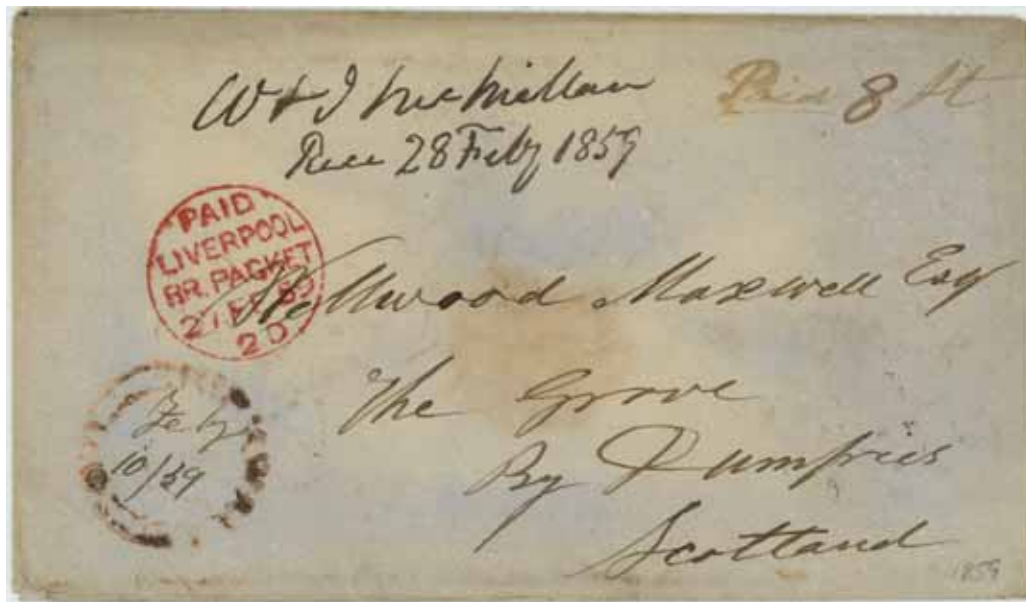 Paid 8 St
W & J McMillan
Rece 28 Feby 1859
PAID
LIVERPOOL
BR. PACKET
27 FE 59
2D
Wellwood Maxwell Esq
The Grove
By Dumfries
Scotland
Feby
10/59
1859